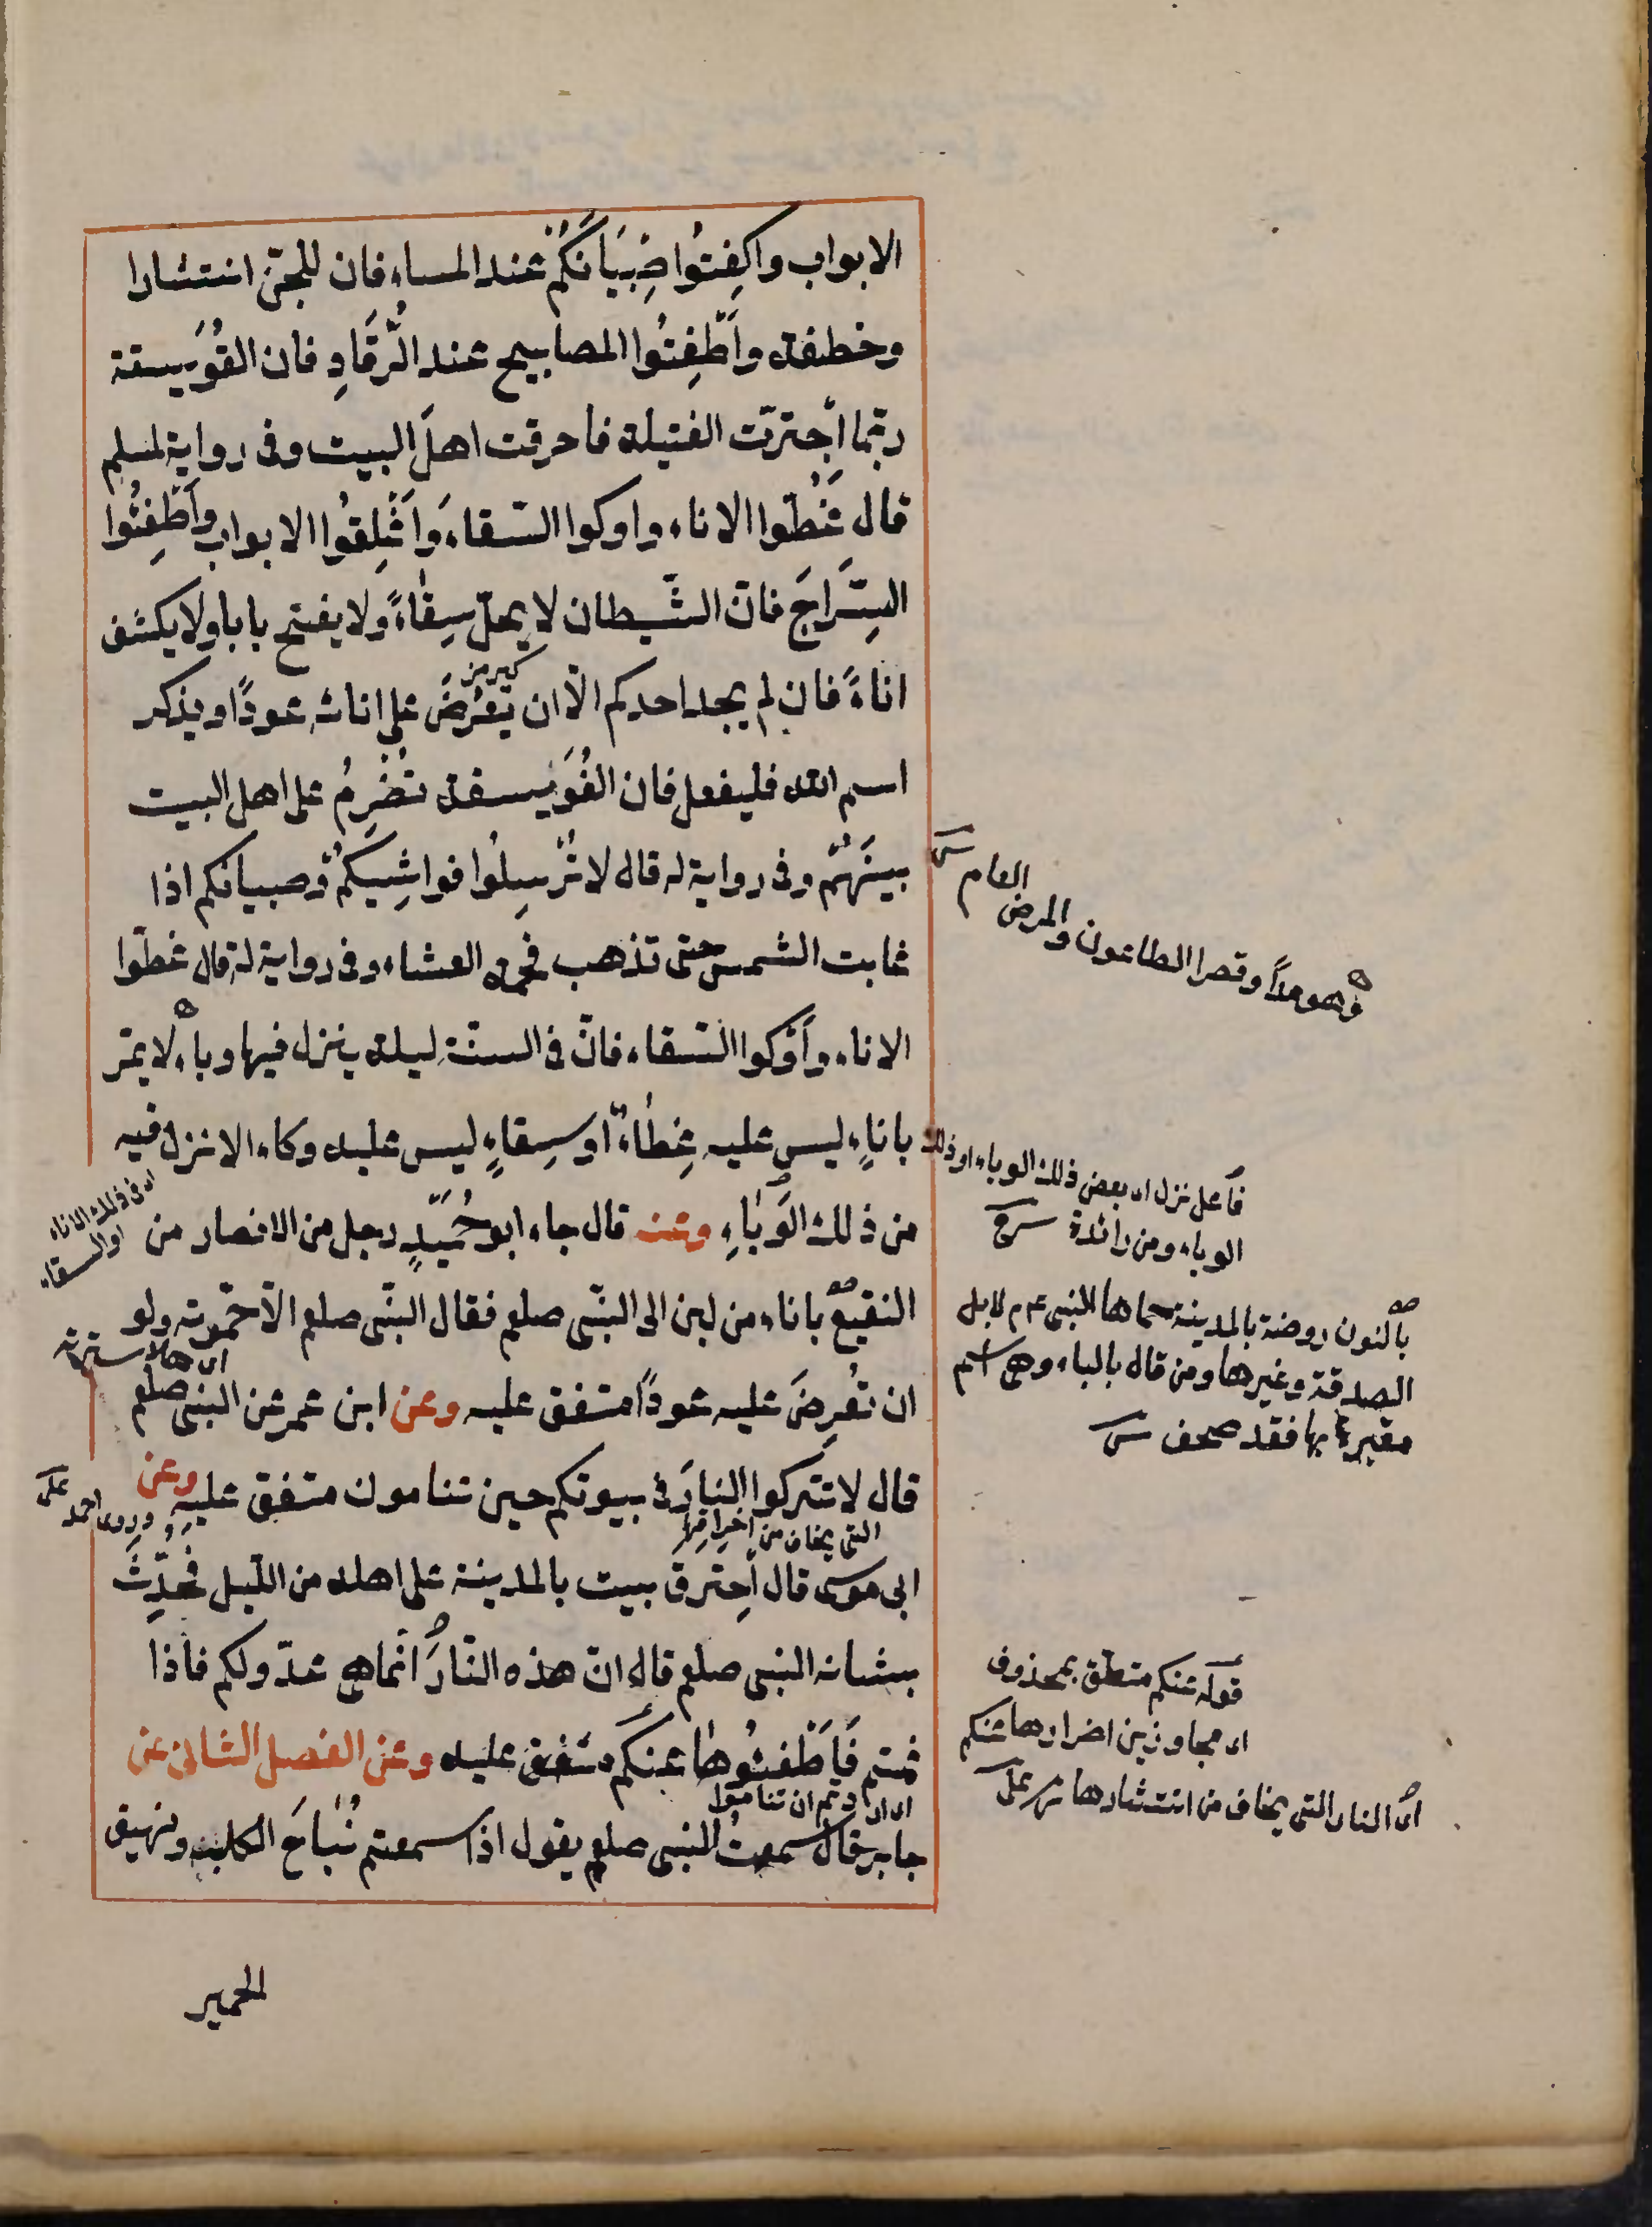 الابواب واكفِتُوا صِبْيَانَكُمْ عند المساء فان للجنّ انتشارا
وخطفة واَطْفِئُوا المصابيح عند الرُّقَادِ فان الفُوَيسقة
ربّما اجترّت الفتيلة فاحرقت اهلَ البيت وفى رواية لمسلم
قال غَطُّوا الاناء واوكوا السّقاء وَاَغْلِقُوا الابواب واَطْفِئُوا
السِّرَاجَ فانّ الشّيطان لا يحلّ سِقَاءً ولا يفتح بابا ولا يكشف
اناءً فان لم يجد احدكم الّا ان يَعْرُضَ على انائه عودًا ويذكر
اسم الله فليفعل فان الفُوَيْسقة تُضْرِمُ على اهل البيت
بيتَهُمْ وفى رواية له قال لا تُرْسِلُوا فواشِيَكُمْ وصبيانكم اذا
غابت الشمس حتى تذهب فحمة العشاء وفى رواية له قال غطّوا
الاناء واَوْكوا السّقاء فانّ فى السنة ليلة ينزل فيها وباء لا يمرّ
باناءٍ ليس عليه غِطَاءٌ او سِقاءٍ ليس عليه وكاء الا نزل فيه
من ذلك الوَبَاءِ وعنه قال جاء ابو حُمَيْدٍ رجل من الانصار من
النقيع باناء من لبن الى النّبى صلعم فقال النّبى صلعم الّا خمّرته ولو
ان تَعْرِضَ عليه عودًا متفق عليه وعن ابن عمر عن النبى صلعم
قال لا تتركوا النارَ فى بيوتكم حين تنامون متفق عليه وعن
ابى موسى قال اِحترق بيت بالمدينة على اهله من اللّيل فحُدِّثَ
بشانه النبى صلعم قال انّ هذه النّارَ انّما هى عدوّ لكم فاذا
نمتم فَاَطْفِئُوهَا عنكم متفق عليه وعن الفصل الثانى عن
جابر قال سمعتُ النبى صلعم يقول اذا سمعتم نُبَاحَ الكلب ونهيق
الحمير
وهو مدًّا وقصرا الطاعون والمرض العام
فاعل نزل اى بعض ذلك الوباء او ذلك
الوباء ومن زائدة
اى فى ذلك الاناء
او السقاء
بالنون روضة بالمدينة حماها النبى عم لابل
الصدقة وغيرها ومن قال بالباء وهى اسم
مقبرة بها فقد صحف
اى هلا سترته
التى يخاف من احراقها
قوله عنكم متعلق بمحذوف
اى مجاوزين اضرارها عنكم
اى النار التى يخاف من انتشارها
اى اردتم ان تناموا